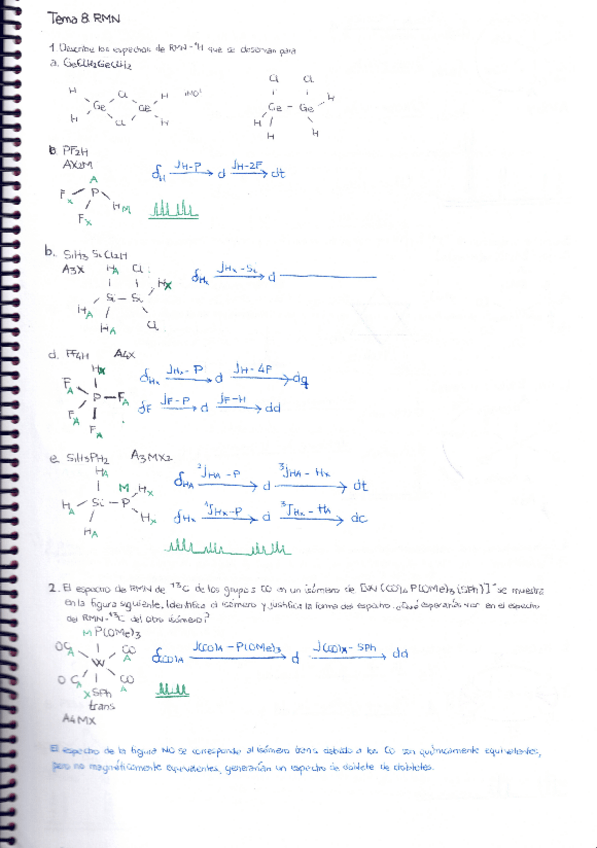 Tema 8. RMN
1. Describe los espectros de RMN-¹H que se observan para
a. GeClH2GeClH2
H Cl H ¡NO! Cl Cl
Ge Ge Ge - Ge H
H Cl H H H H
b. PF2H
AX2M
A
δH JH-P d JH-2F dt
Fx P HM
Fx
b. SiH3 SiCl2H
A3X HA Cl Hx
δHx JHx-Si d
Si - Si
HA HA Cl
d. PF4H A4X
Hx
δHx JHx-P d JH-4F dq
FA P FA
δF JF-P d JF-H dd
FA FA
e. SiH3PH2 A3MX2
HA
M Hx
δHA ²JHA-P d ³JHA-Hx dt
HA Si - P Hx
HA
δHx ¹JHx-P d ³JHx-HA dc
2. El espectro de RMN de ¹³C de los grupos CO en un isómero de [W(CO)4P(OMe)3(SPh)]⁻ se muestra
en la figura siguiente. Identifica el isómero y justifica la forma del espectro. ¿Qué esperarías ver en el espectro
de RMN-¹³C del otro isómero?
M P(OMe)3
OC A CO A
δ(CO)A J(CO)A-P(OMe)3 d J(CO)A-SPh dd
W
OC A CO A
X SPh
trans
A4MX
El espectro de la figura NO se corresponde al isómero trans debido a los CO son químicamente equivalentes,
pero no magnéticamente equivalentes, generarían un espectro de doblete de dobletes.